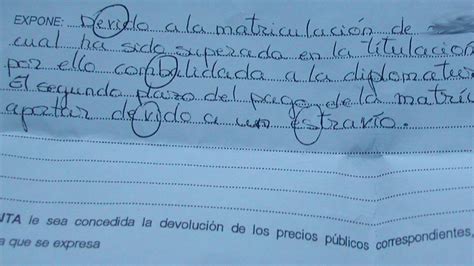 EXPONE: Devido a la matriculación de
cual ha sido superada en la titulación
por ello combalidada a la diplomatur
El segundo plazo del pago de la matríc
aportar devido a un estravío.
UTA le sea concedida la devolución de los precios públicos correspondientes,
a que se expresa